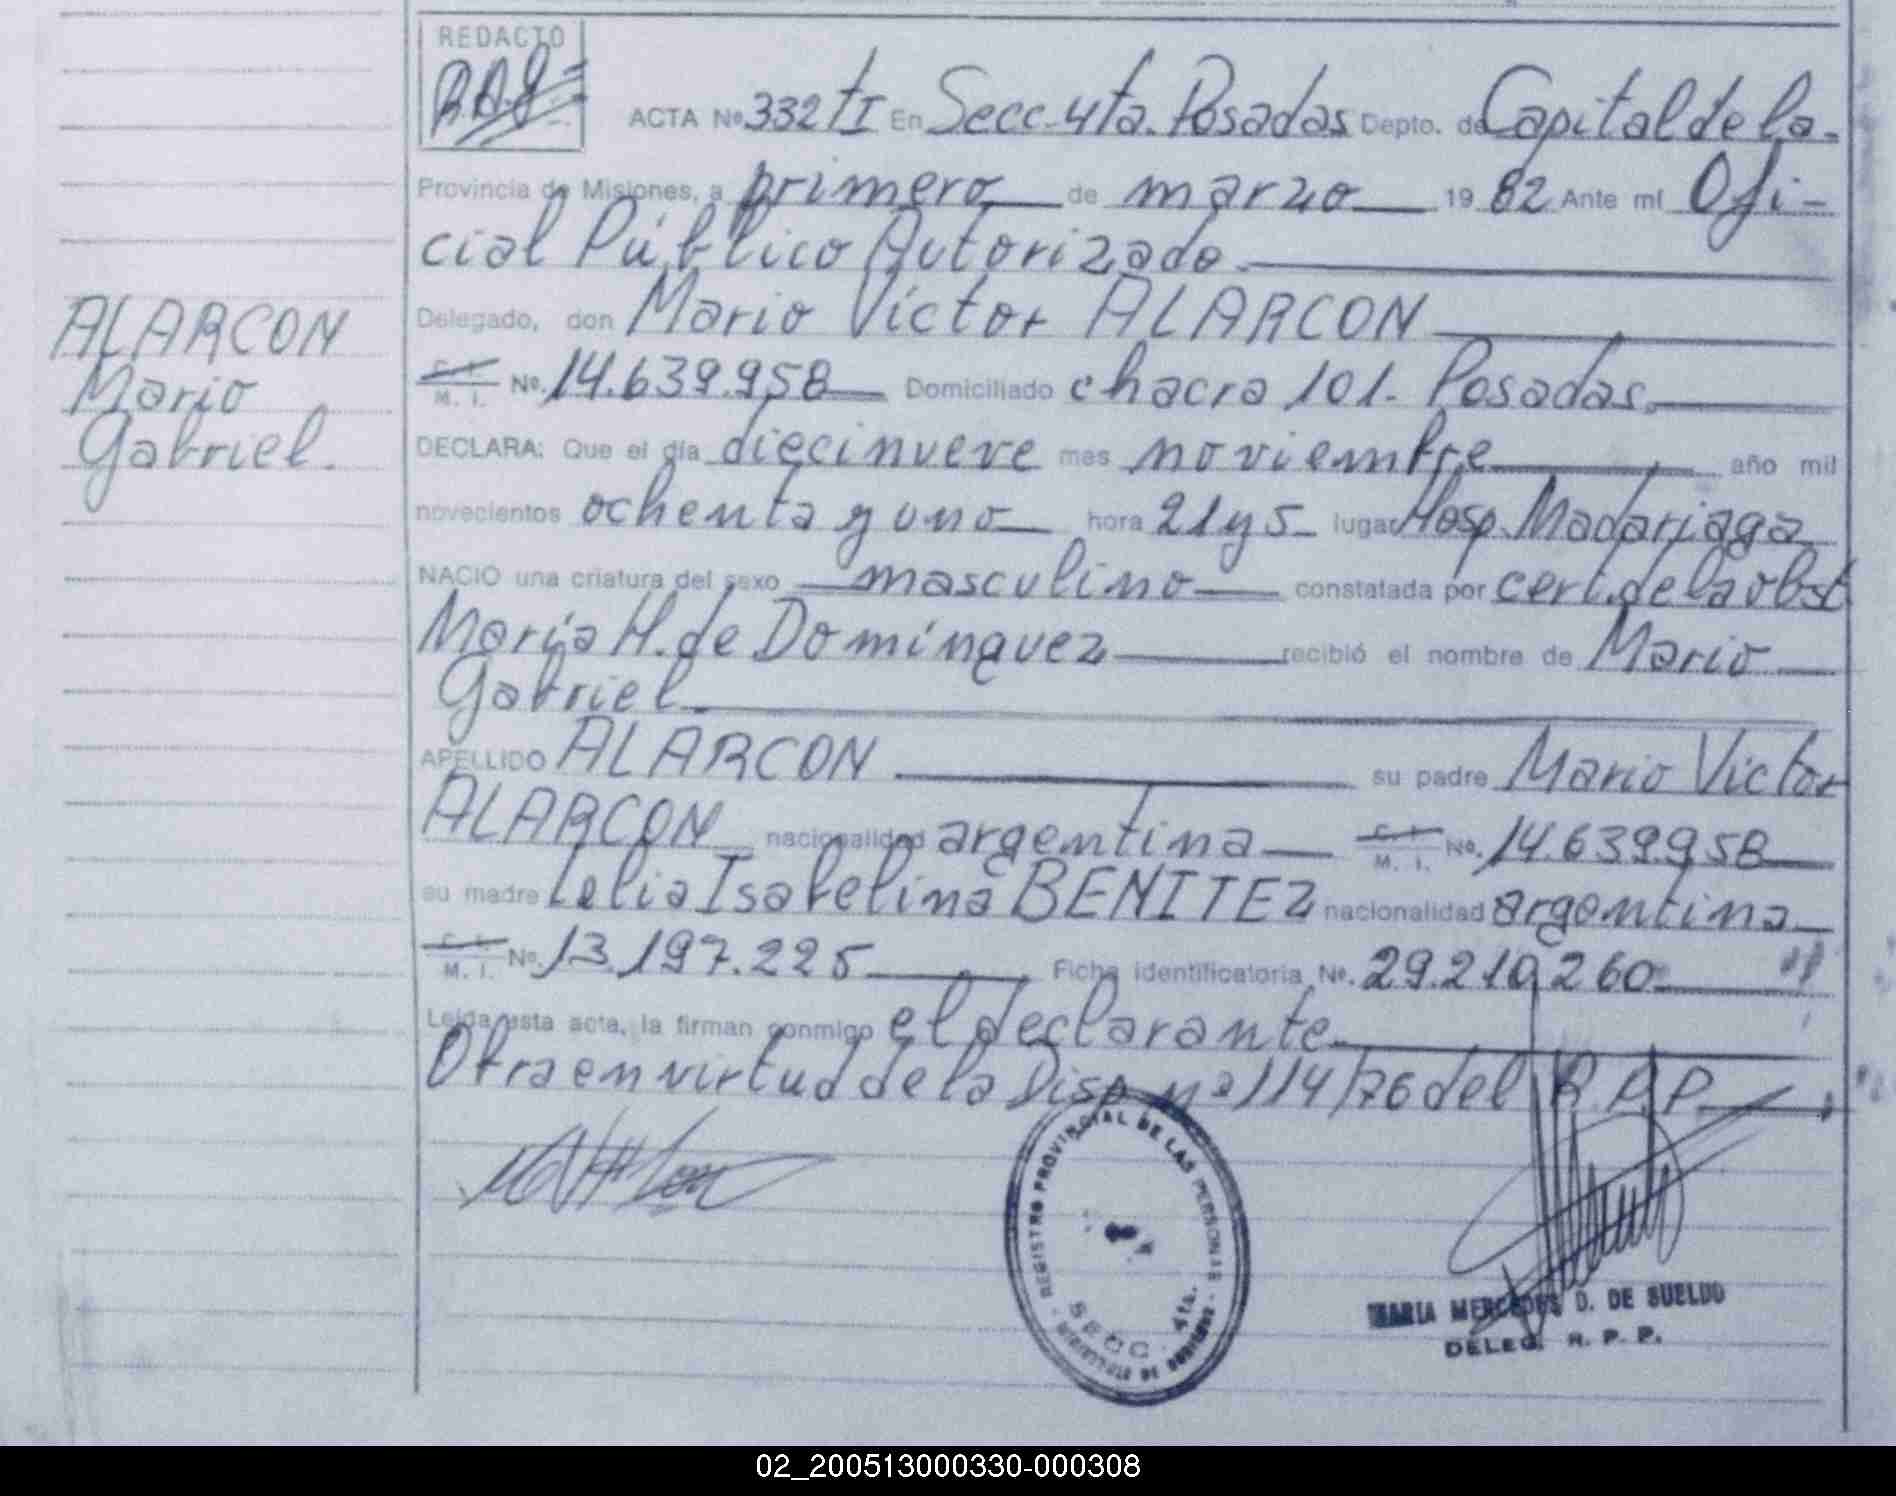 REDACTO
ACTA Nº 332 tI En Secc. 4ta. Posadas Depto. de Capital de la
Provincia de Misiones, a primero de marzo 1982 Ante mí Ofi-
cial Público Autorizado.
Delegado, don Mario Víctor ALARCON
C. I. M. I. Nº. 14.639.958 Domiciliado chacra 101. Posadas.
DECLARA: Que el día diecinueve mes noviembre año mil
novecientos ochenta y uno hora 21 y 5 lugar Hosp. Madariaga
NACIO una criatura del sexo masculino constatada por cert. de la obst
María H. de Domínguez recibió el nombre de Mario
Gabriel
APELLIDO ALARCON su padre Mario Víctor
ALARCON nacionalidad argentina C. I. M. I. Nº. 14.639.958
su madre Lelia Isabelina BENITEZ nacionalidad argentina
C. I. M. I. Nº. 13.197.225 Ficha identificatoria Nº. 29.210.260
Leída esta acta, la firman conmigo el declarante
Obra en virtud de la Disp. nº 114/76 del R.P.P.
ALARCON
Mario
Gabriel.
REGISTRO PROVINCIAL DE LAS PERSONAS
SECC. 4ta.
MARIA MERCEDES D. DE SUELDO
DELEG. R. P. P.
02_200513000330-000308